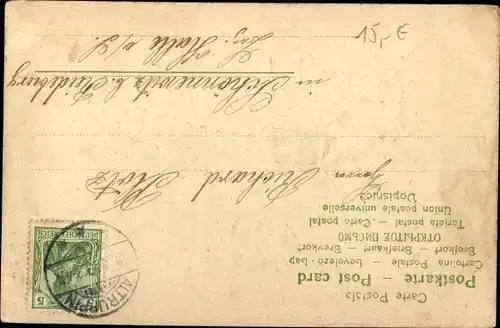 Carte Postale
Postkarte — Post card
Cartolina Postale — Levelező-lap
Brefkort — Briefkaart — Brevkort
ОТКРЫТОЕ ПИСЬМО
Tarjeta postal — Carto postal
Union postale universelle
Dopisnica
Herrn Richard
in Schönnewitz b. Reideburg
Bez. Halle a/S.
DEUTSCHES REICH
5 5
ALTRUPPIN
15,- €